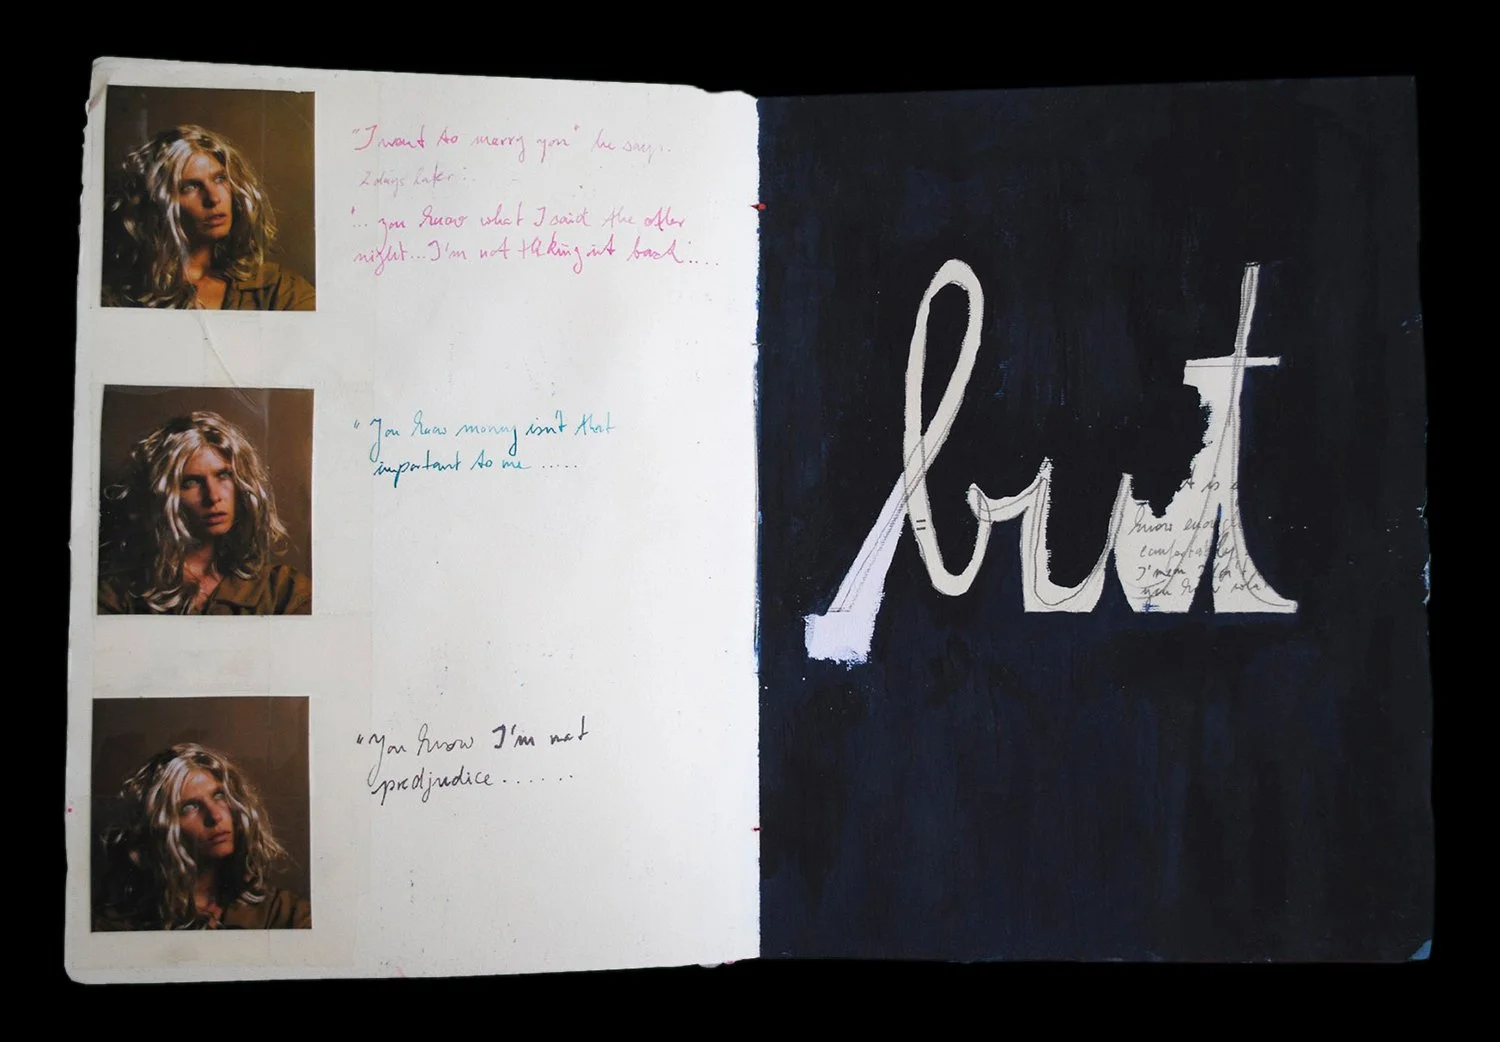 "I want to marry you" he says.
2 days later:
"... you know what I said the other
night... I'm not taking it back....
"You know money isn't that
important to me .....
"You know I'm not
predjudice.......
but
know enough
comfortably
I'mean
you know